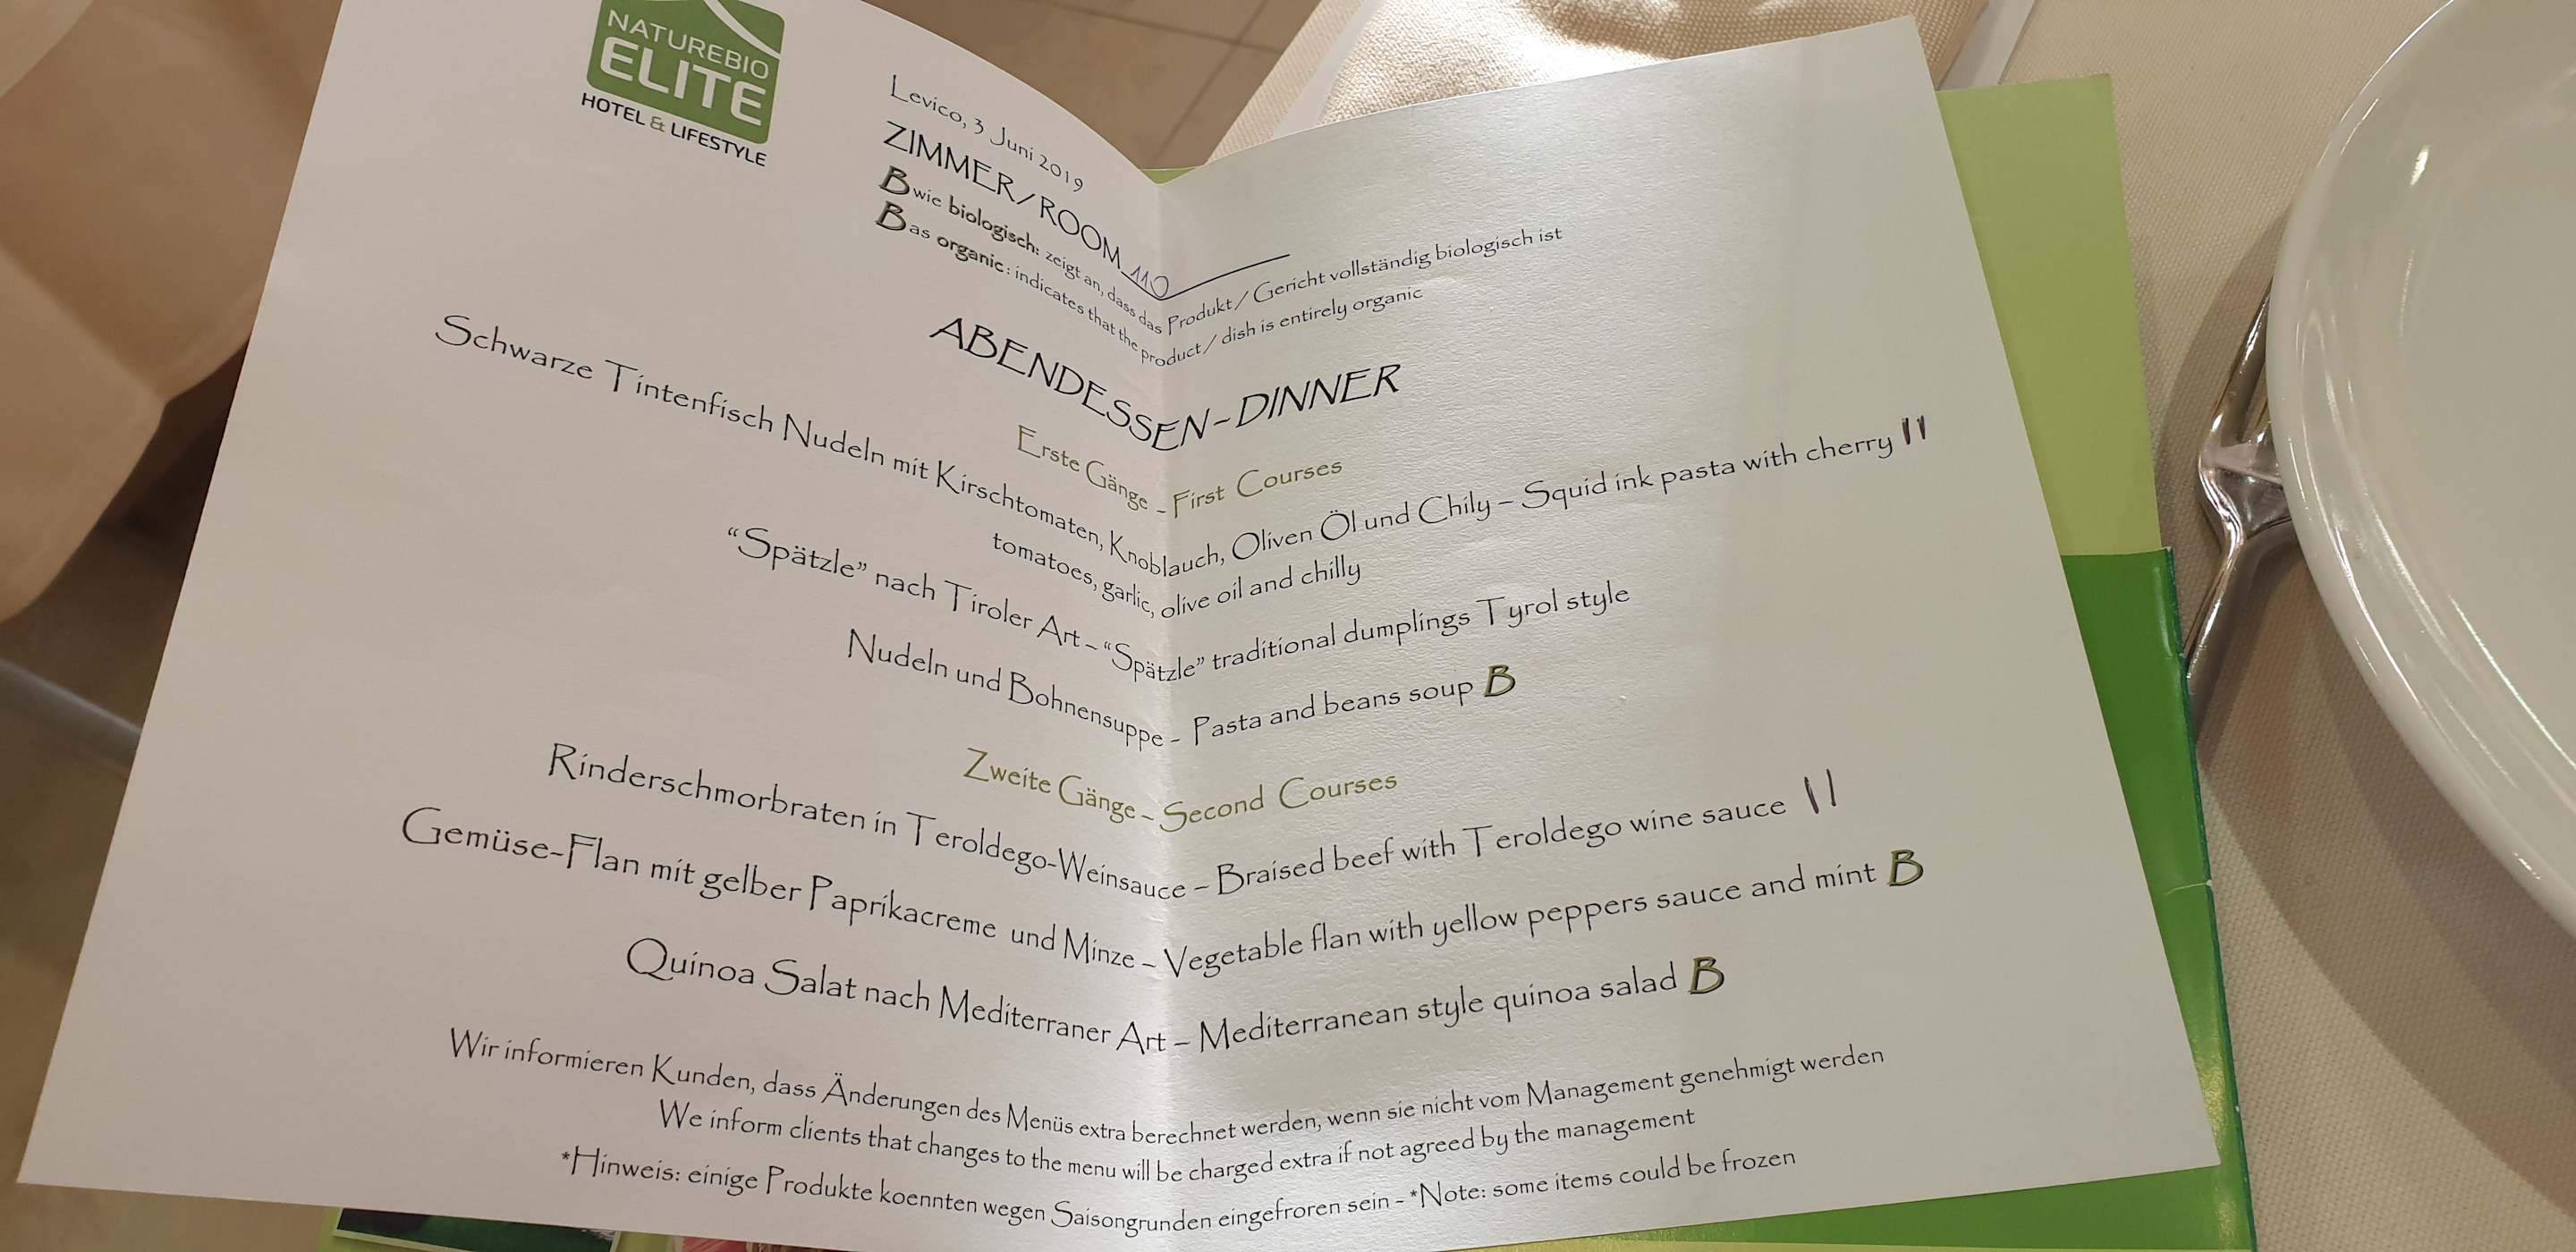 NATUREBIO
ELITE
HOTEL & LIFESTYLE
Levico, 3 Juni 2019
ZIMMER/ROOM 110
B wie biologisch: zeigt an, dass das Produkt / Gericht vollständig biologisch ist
B as organic: indicates that the product / dish is entirely organic
ABENDESSEN - DINNER
Erste Gänge - First Courses
Schwarze Tintenfisch Nudeln mit Kirschtomaten, Knoblauch, Oliven Öl und Chily – Squid ink pasta with cherry II
tomatoes, garlic, olive oil and chilly
“Spätzle” nach Tiroler Art – “Spätzle” traditional dumplings Tyrol style
Nudeln und Bohnensuppe - Pasta and beans soup B
Zweite Gänge – Second Courses
Rinderschmorbraten in Teroldego-Weinsauce – Braised beef with Teroldego wine sauce II
Gemüse-Flan mit gelber Paprikacreme und Minze – Vegetable flan with yellow peppers sauce and mint B
Quinoa Salat nach Mediterraner Art – Mediterranean style quinoa salad B
Wir informieren Kunden, dass Änderungen des Menüs extra berechnet werden, wenn sie nicht vom Management genehmigt werden
We inform clients that changes to the menu will be charged extra if not agreed by the management
*Hinweis: einige Produkte koennten wegen Saisongrunden eingefroren sein - *Note: some items could be frozen